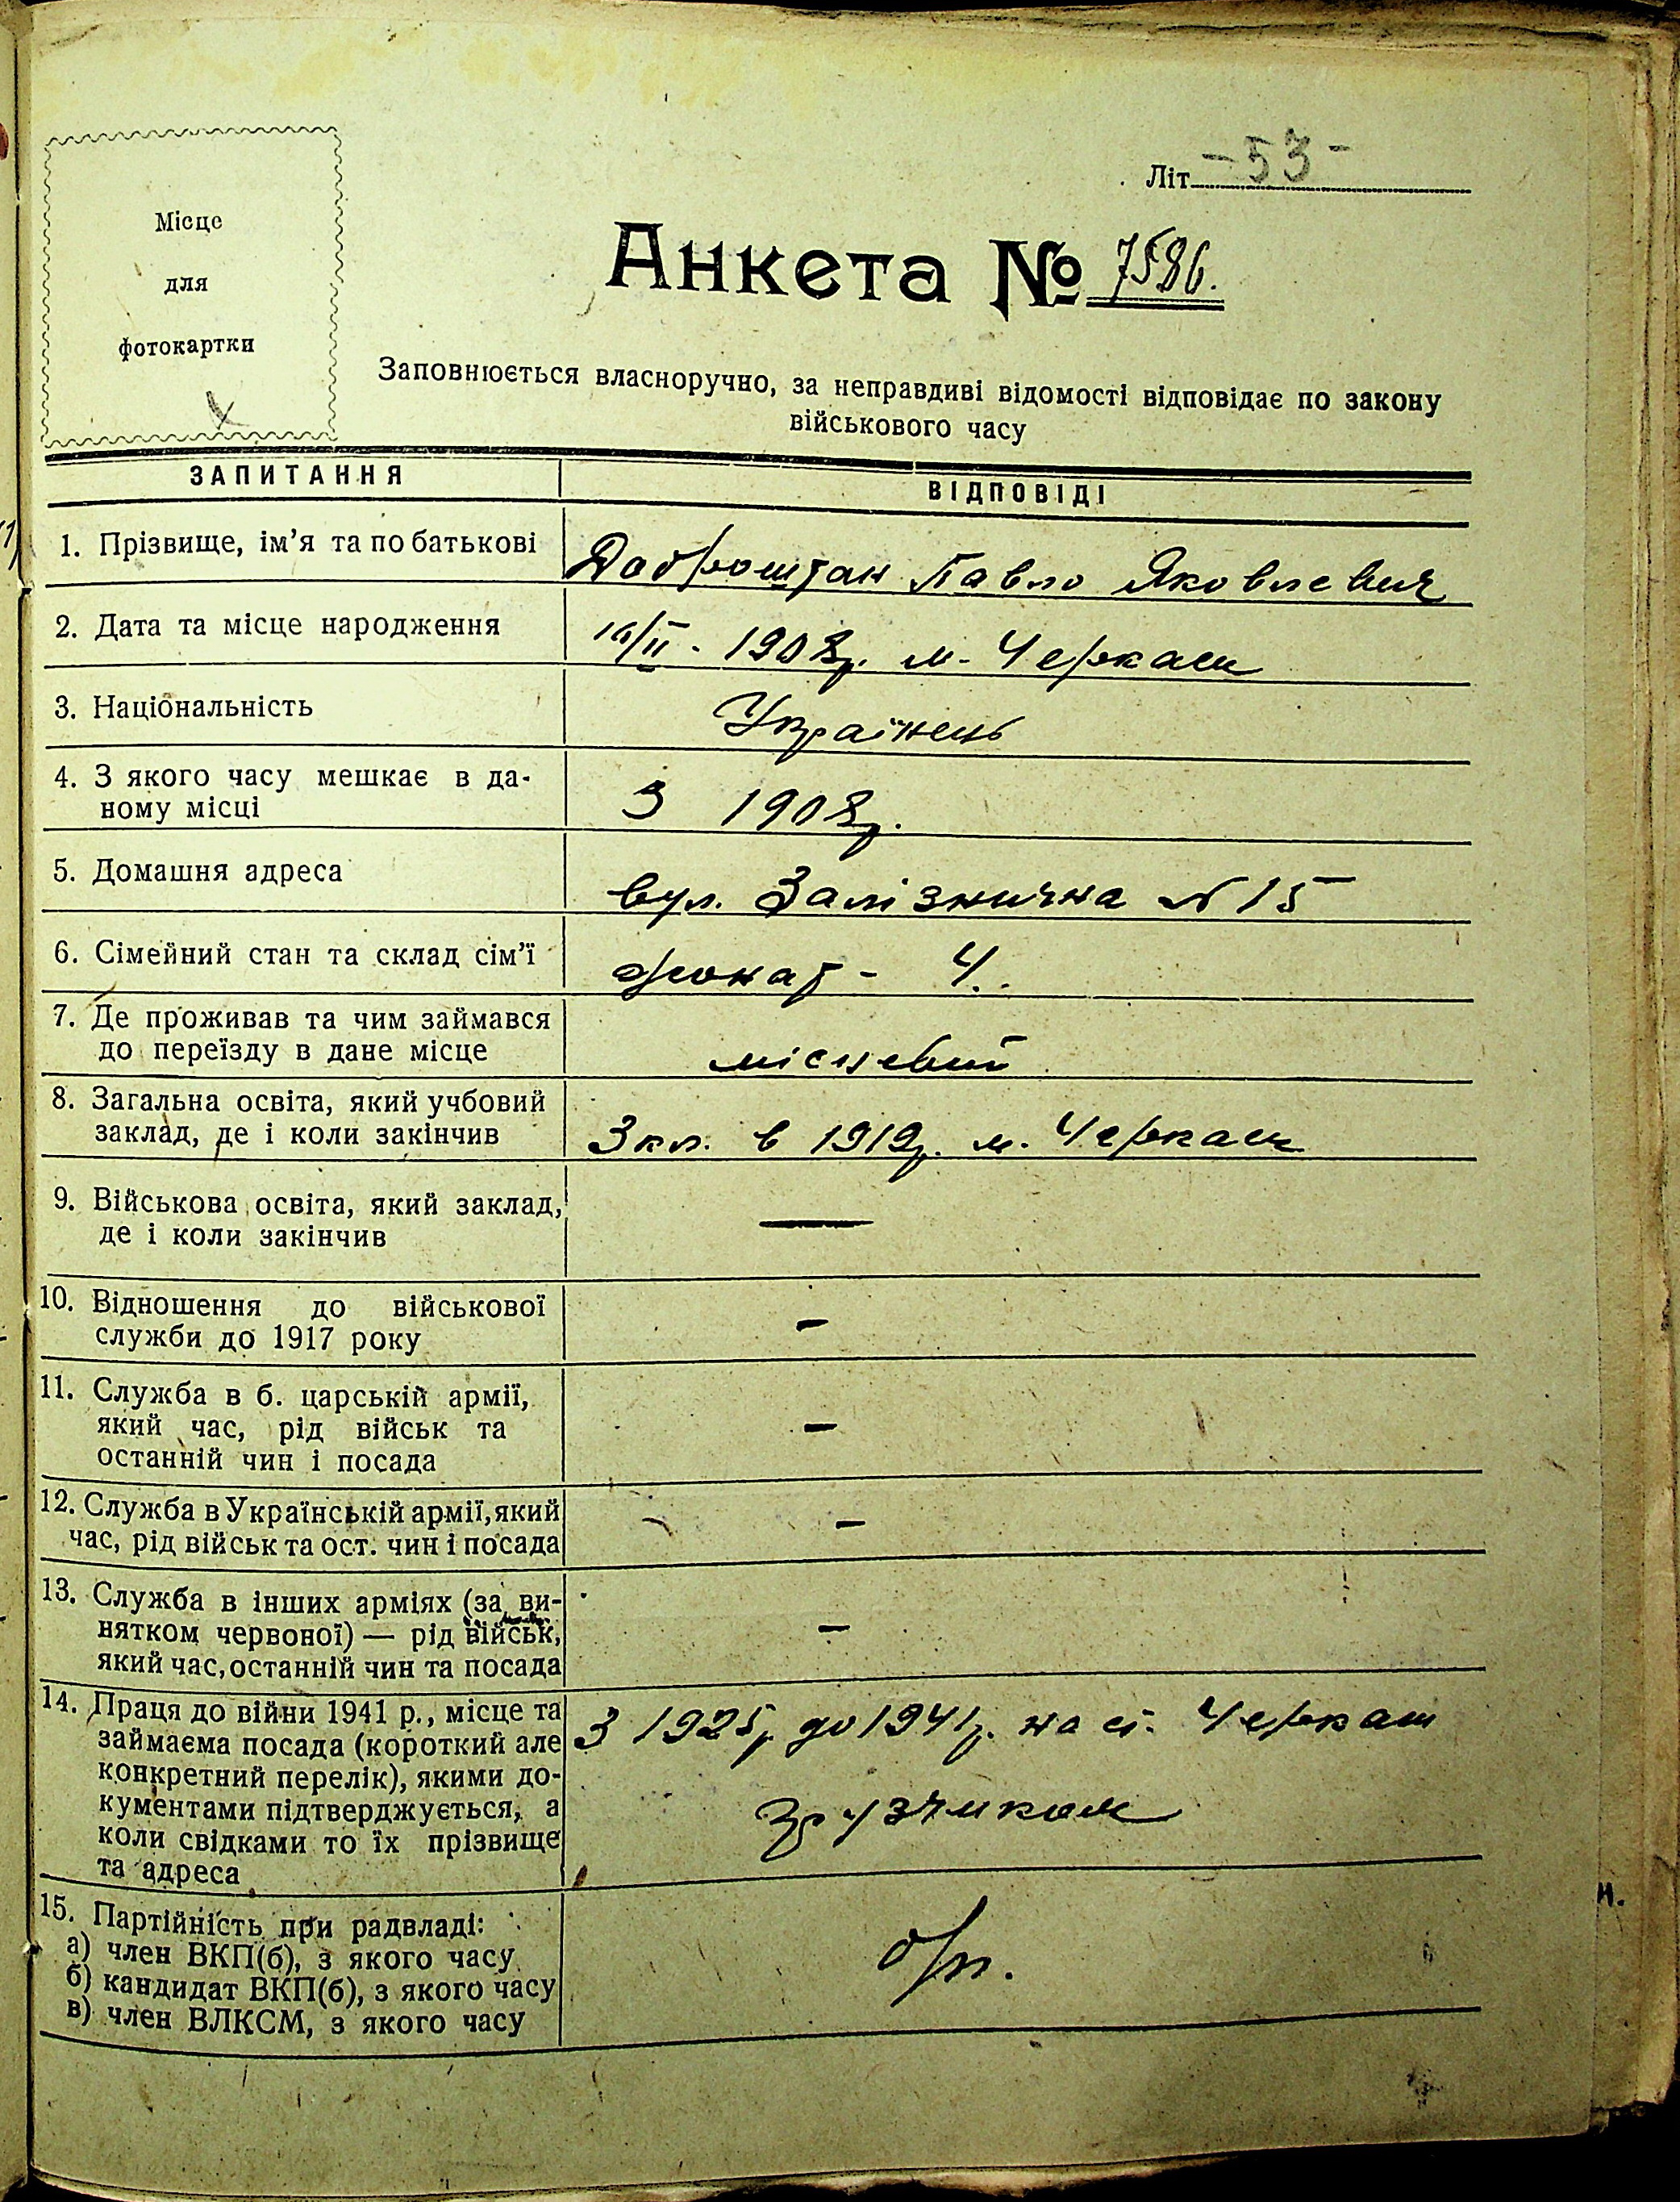 Літ. -53-
Місце
для
фотокартки
Анкета № 7586.
Заповнюється власноручно, за неправдиві відомості відповідає по закону
військового часу
ЗАПИТАННЯ
ВІДПОВІДІ
1. Прізвище, ім'я та по батькові
Доброштан Павло Яковлевич
2. Дата та місце народження
16/II - 1908р. м. Черкаси
3. Національність
Українець
4. З якого часу мешкає в да-
ному місці
З 1908р.
5. Домашня адреса
вул. Залізнична N 15
6. Сімейний стан та склад сім'ї
жонат - 4.
7. Де проживав та чим займався
до переїзду в дане місце
місцевий
8. Загальна освіта, який учбовий
заклад, де і коли закінчив
3 кл. в 1919р. м. Черкаси
9. Військова освіта, який заклад,
де і коли закінчив
—
10. Відношення до військової
служби до 1917 року
—
11. Служба в б. царській армії,
який час, рід військ та
останній чин і посада
—
12. Служба в Українській армії, який
час, рід військ та ост. чин і посада
—
13. Служба в інших арміях (за ви-
нятком червоної) — рід військ,
який час, останній чин та посада
—
14. Праця до війни 1941 р., місце та
займаєма посада (короткий але
конкретний перелік), якими до-
кументами підтверджується, а
коли свідками то їх прізвище
та адреса
З 1925р. до 1941р. на ст. Черкаси
грузчиком
15. Партійність при радвладі:
а) член ВКП(б), з якого часу
б) кандидат ВКП(б), з якого часу
в) член ВЛКСМ, з якого часу
б/п.